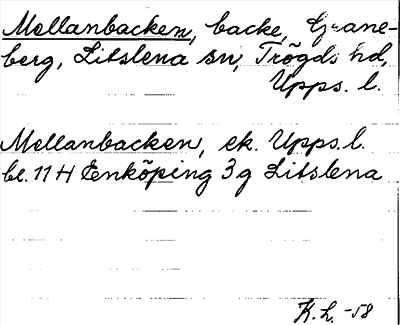 Mellanbacken, backe, Grane-
berg, Litslena sn, Trögds hd,
Upps. l.
Mellanbacken, ek. Upps. l.
bl. 11 H Enköping 3 g Litslena
K. L. -58